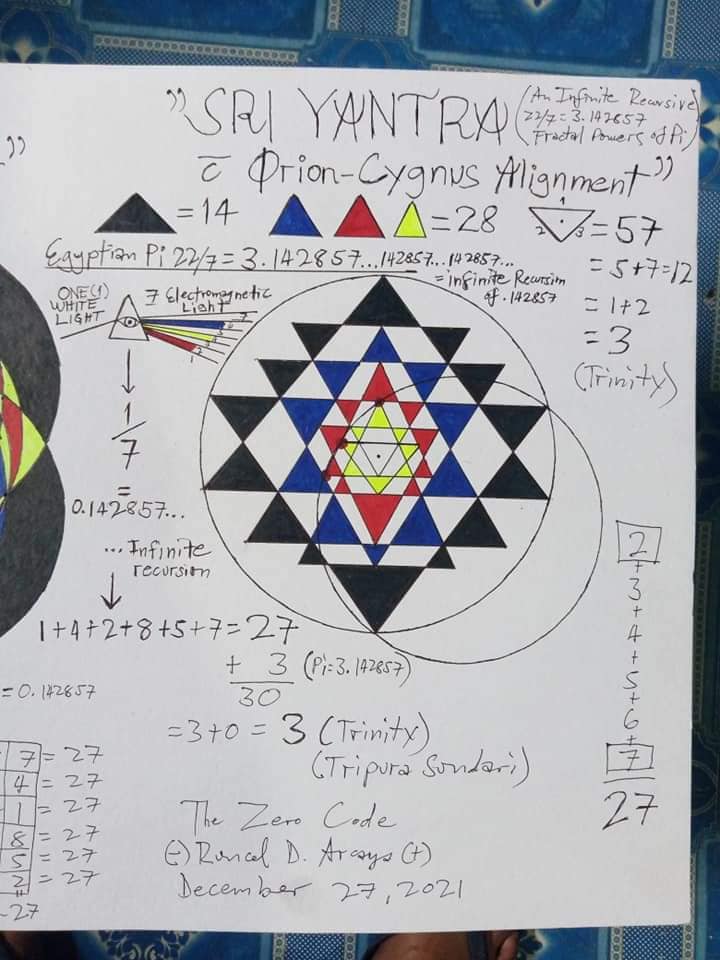 "SRI YANTRA
(An Infinite Recursive
22/7 = 3.142857
Fractal Powers of Pi)
c̄ Orion-Cygnus Alignment"
= 14
= 28
1
2 3
= 57
= 5+7=12
= 1+2
= 3
(Trinity)
Egyptian Pi 22/7 = 3.142857...142857...142857...
= infinite Recursion
of .142857
ONE(1)
WHITE
LIGHT
7 Electromagnetic
Light
1
/
7
=
0.142857...
... Infinite
recursion
1+4+2+8+5+7=27
+ 3 (Pi=3.142857)
30
=3+0 = 3 (Trinity)
(Tripura Sundari)
= 0.142857
7 = 27
4 = 27
1 = 27
8 = 27
5 = 27
2 = 27
"
-27
The Zero Code
December 27, 2021
2
+
3
+
4
+
5
+
6
+
7
27